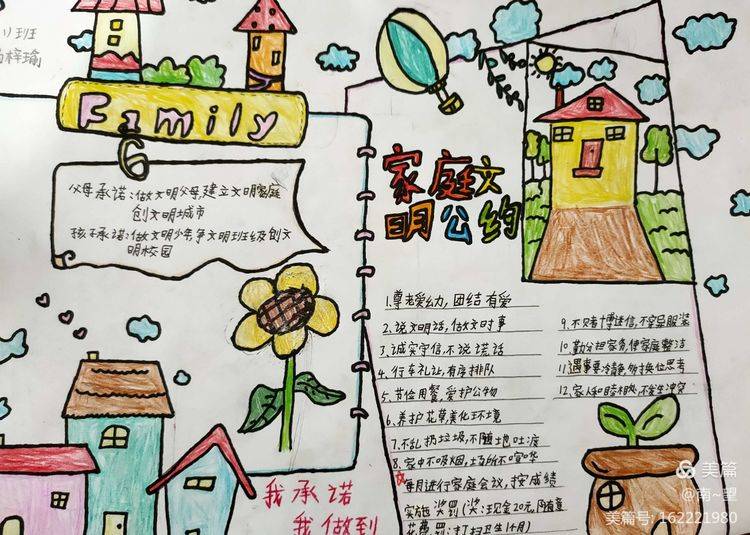 班
梓瑜
Family
6
父母承诺:做文明父母,建立文明家庭
创文明城市
孩子承诺:做文明少年,争文明班级及创文
明校园
我承诺
我做到
家庭文
明公约
1.尊老爱幼,团结有爱
2.说文明话,做文明事
3.诚实守信,不说谎话
4.行车礼让,有序排队
5.节俭用餐,爱护公物
6.养护花草,美化环境
7.不乱扔垃圾,不随地吐痰
8.家中不吸烟,场所不喧哗
9.不赌博迷信,不穿异服装
10.勤分担家务,使家庭整洁
11.遇事要冷静,多换位思考
12.家人和睦相处,不发生冲突
每月进行家庭会议,按成绩
实施奖罚(奖:现金20元,随意
花费 罚:打扫卫生1个月)
美篇
@南~望
美篇号:162221980